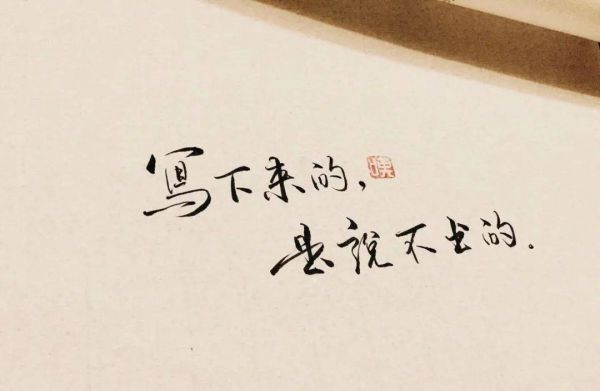 寫下来的，
是說不出的.